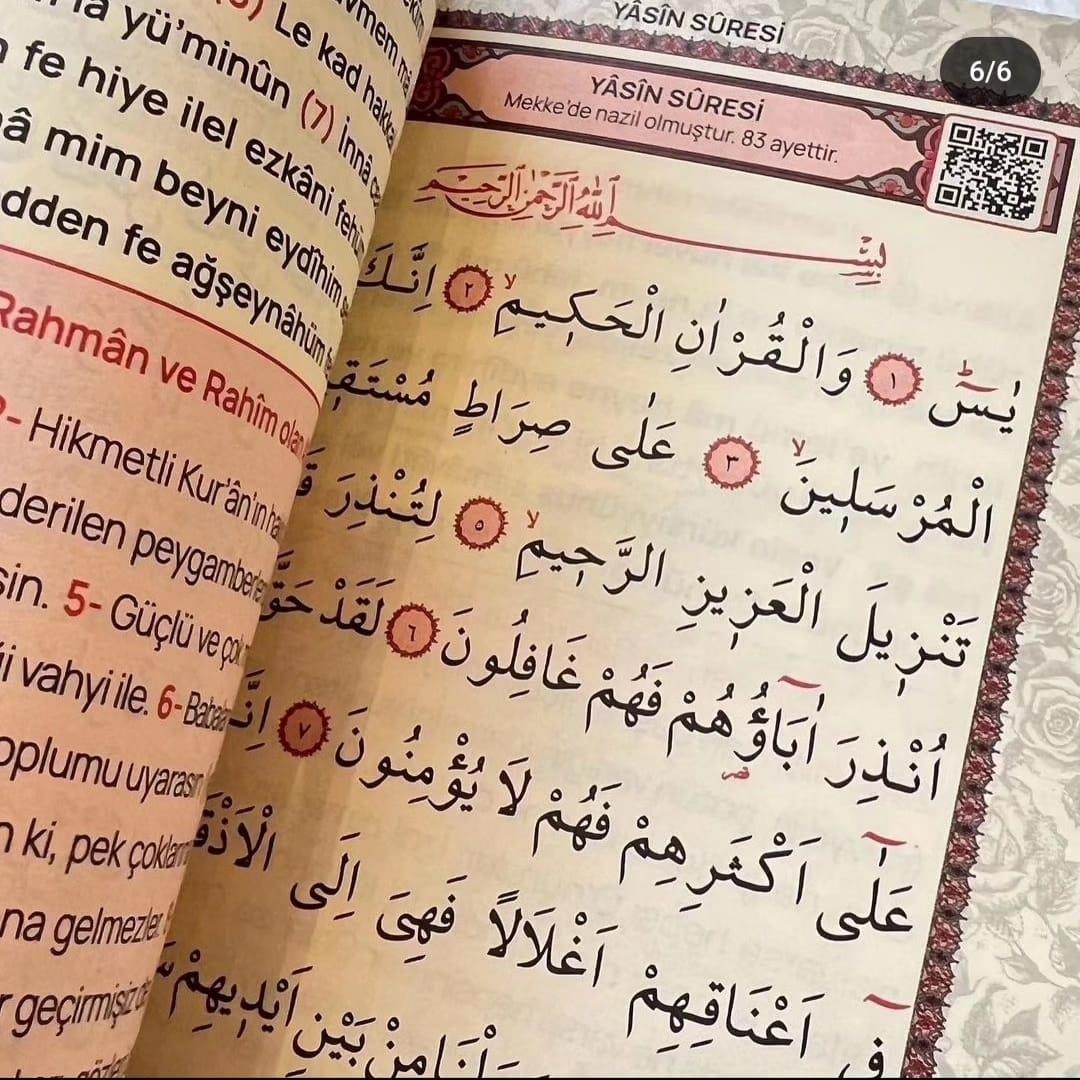 6/6
(6) Le kad hakka
yü'minûn (7) İnnâ
fe hiye ilel ezkâni
mim beyni eydîhim
fe ağşeynâhüm
Rahmân ve Rahîm olan
Hikmetli Kur'ân'ın
peygamberler
5- Güçlü ve çok
vahyi ile. 6-
uyarasın
ki, pek çokların
gelmezler.
geçirmişiz
YÂSÎN SÛRESİ
YÂSÎN SÛRESİ
Mekke'de nazil olmuştur. 83 ayettir.
بِسْمِ اللّٰهِ الرَّحْمٰنِ الرَّحِيمِ
يٰسٓ ﴿١﴾ وَالْقُرْاٰنِ الْحَكِيمِۙ ﴿٢﴾ اِنَّكَ
الْمُرْسَلِينَۙ ﴿٣﴾ عَلٰى صِرَاطٍ
تَنْزِيلَ الْعَزِيزِ الرَّحِيمِۙ ﴿٥﴾ لِتُنْذِرَ
اُنْذِرَ اٰبَٓاؤُ۬هُمْ فَهُمْ غَافِلُونَ ﴿٦﴾ لَقَدْ حَقَّ
عَلٰٓى اَكْثَرِهِمْ فَهُمْ لَا يُؤْمِنُونَ ﴿٧﴾
فِٓي اَعْنَاقِهِمْ اَغْلَالًا فَهِيَ اِلَى
مِنْ بَيْنِ اَيْدِيهِمْ